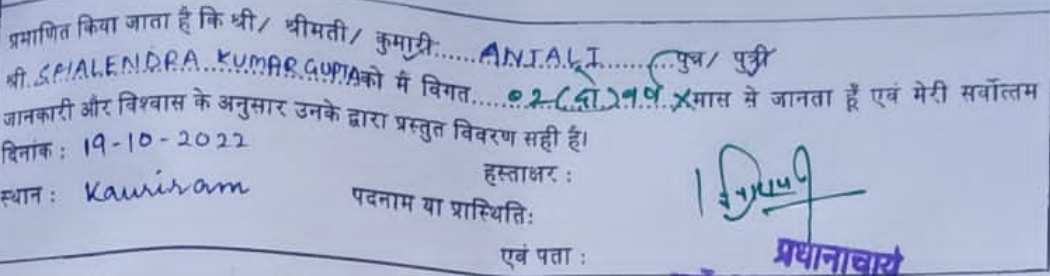 प्रमाणित किया जाता है कि श्री/ श्रीमती/ कुमारी......ANJALI..........पुत्र/ पुत्री
श्री.SHALENDRA KUMAR GUPTAको मैं विगत.....02(दो)वर्ष Xमास से जानता हूँ एवं मेरी सर्वोत्तम
जानकारी और विश्वास के अनुसार उनके द्वारा प्रस्तुत विवरण सही है।
दिनांक : 19-10-2022
हस्ताक्षर :
स्थान : Kauriram
पदनाम या प्रास्थिति:
एवं पता :
प्रधानाचार्य